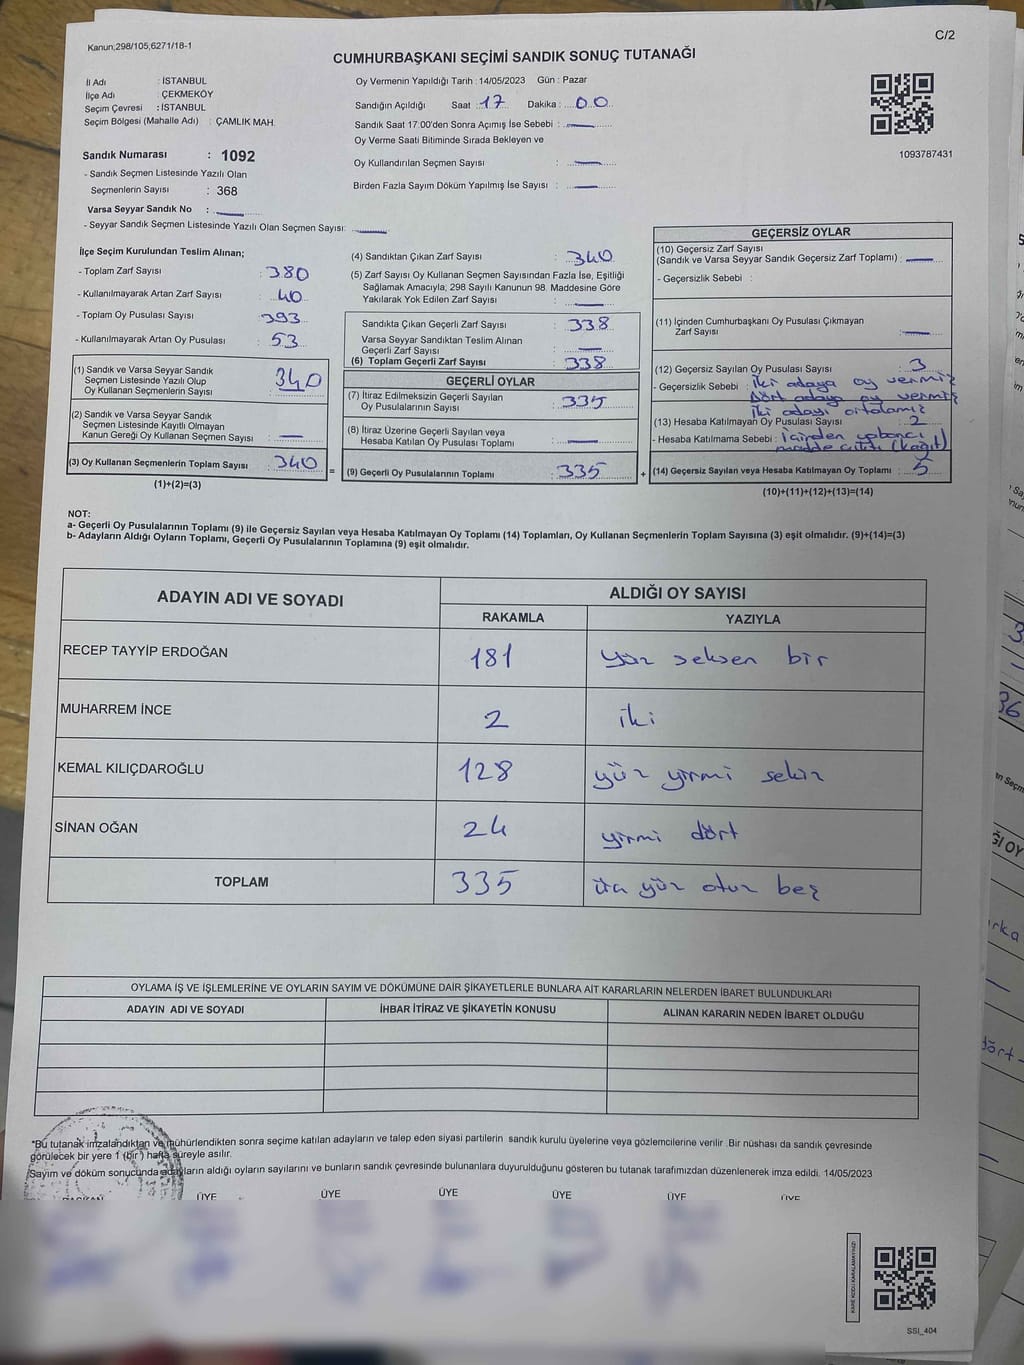 Kanun,298/105,6271/18-1
C/2
CUMHURBAŞKANI SEÇİMİ SANDIK SONUÇ TUTANAĞI
İl Adı : İSTANBUL
İlçe Adı : ÇEKMEKÖY
Seçim Çevresi : İSTANBUL
Seçim Bölgesi (Mahalle Adı) : ÇAMLIK MAH.
Sandık Numarası : 1092
- Sandık Seçmen Listesinde Yazılı Olan
Seçmenlerin Sayısı : 368
Varsa Seyyar Sandık No :
- Seyyar Sandık Seçmen Listesinde Yazılı Olan Seçmen Sayısı:
Oy Vermenin Yapıldığı Tarih : 14/05/2023 Gün : Pazar
Sandığın Açıldığı Saat : 17 Dakika : 00
Sandık Saat 17:00'den Sonra Açımış İse Sebebi :
Oy Verme Saati Bitiminde Sırada Bekleyen ve
Oy Kullandırılan Seçmen Sayısı :
Birden Fazla Sayım Döküm Yapılmış İse Sayısı :
1093787431
İlçe Seçim Kurulundan Teslim Alınan;
- Toplam Zarf Sayısı : 380
- Kullanılmayarak Artan Zarf Sayısı : 40
- Toplam Oy Pusulası Sayısı : 393
- Kullanılmayarak Artan Oy Pusulası : 53
(1) Sandık ve Varsa Seyyar Sandık
Seçmen Listesinde Yazılı Olup
Oy Kullanan Seçmenlerin Sayısı : 340
(2) Sandık ve Varsa Seyyar Sandık
Seçmen Listesinde Kayıtlı Olmayan
Kanun Gereği Oy Kullanan Seçmen Sayısı :
(3) Oy Kullanan Seçmenlerin Toplam Sayısı : 340 =
(1)+(2)=(3)
(4) Sandıktan Çıkan Zarf Sayısı : 340
(5) Zarf Sayısı Oy Kullanan Seçmen Sayısından Fazla İse, Eşitliği
Sağlamak Amacıyla, 298 Sayılı Kanunun 98. Maddesine Göre
Yakılarak Yok Edilen Zarf Sayısı :
Sandıkta Çıkan Geçerli Zarf Sayısı : 338
Varsa Seyyar Sandıktan Teslim Alınan
Geçerli Zarf Sayısı :
(6) Toplam Geçerli Zarf Sayısı : 338
GEÇERLİ OYLAR
(7) İtiraz Edilmeksizin Geçerli Sayılan
Oy Pusulalarının Sayısı : 335
(8) İtiraz Üzerine Geçerli Sayılan veya
Hesaba Katılan Oy Pusulası Toplamı :
(9) Geçerli Oy Pusulalarının Toplamı : 335 +
GEÇERSİZ OYLAR
(10) Geçersiz Zarf Sayısı
(Sandık ve Varsa Seyyar Sandık Geçersiz Zarf Toplamı) :
- Geçersizlik Sebebi :
(11) İçinden Cumhurbaşkanı Oy Pusulası Çıkmayan
Zarf Sayısı :
(12) Geçersiz Sayılan Oy Pusulası Sayısı : 3
- Geçersizlik Sebebi : İki adaya oy vermiş
Dört adaya oy vermiş
İki adayı ortalamış
(13) Hesaba Katılmayan Oy Pusulası Sayısı : 2
- Hesaba Katılmama Sebebi : İçinden yabancı
madde çıktı (kağıt)
(14) Geçersiz Sayılan veya Hesaba Katılmayan Oy Toplamı : 5
(10)+(11)+(12)+(13)=(14)
NOT:
a- Geçerli Oy Pusulalarının Toplamı (9) ile Geçersiz Sayılan veya Hesaba Katılmayan Oy Toplamı (14) Toplamları, Oy Kullanan Seçmenlerin Toplam Sayısına (3) eşit olmalıdır. (9)+(14)=(3)
b- Adayların Aldığı Oyların Toplamı, Geçerli Oy Pusulalarının Toplamına (9) eşit olmalıdır.
ADAYIN ADI VE SOYADI ALDIĞI OY SAYISI
RAKAMLA YAZIYLA
RECEP TAYYİP ERDOĞAN 181 yüz seksen bir
MUHARREM İNCE 2 iki
KEMAL KILIÇDAROĞLU 128 yüz yirmi sekiz
SİNAN OĞAN 24 yirmi dört
TOPLAM 335 üç yüz otuz beş
OYLAMA İŞ VE İŞLEMLERİNE VE OYLARIN SAYIM VE DÖKÜMÜNE DAİR ŞİKAYETLERLE BUNLARA AİT KARARLARIN NELERDEN İBARET BULUNDUKLARI
ADAYIN ADI VE SOYADI İHBAR İTİRAZ VE ŞİKAYETİN KONUSU ALINAN KARARIN NEDEN İBARET OLDUĞU
*Bu tutanak imzalandıktan ve mühürlendikten sonra seçime katılan adayların ve talep eden siyasi partilerin sandık kurulu üyelerine veya gözlemcilerine verilir .Bir nüshası da sandık çevresinde
görülecek bir yere 1 (bir ) hafta süreyle asılır.
Sayım ve döküm sonucunda adayların aldığı oyların sayılarını ve bunların sandık çevresinde bulunanlara duyurulduğunu gösteren bu tutanak tarafımızdan düzenlenerek imza edildi. 14/05/2023
BAŞKAN ÜYE ÜYE ÜYE ÜYE ÜYE ÜYE
KARE KODU KARALAMAYINIZ!
SSI_404